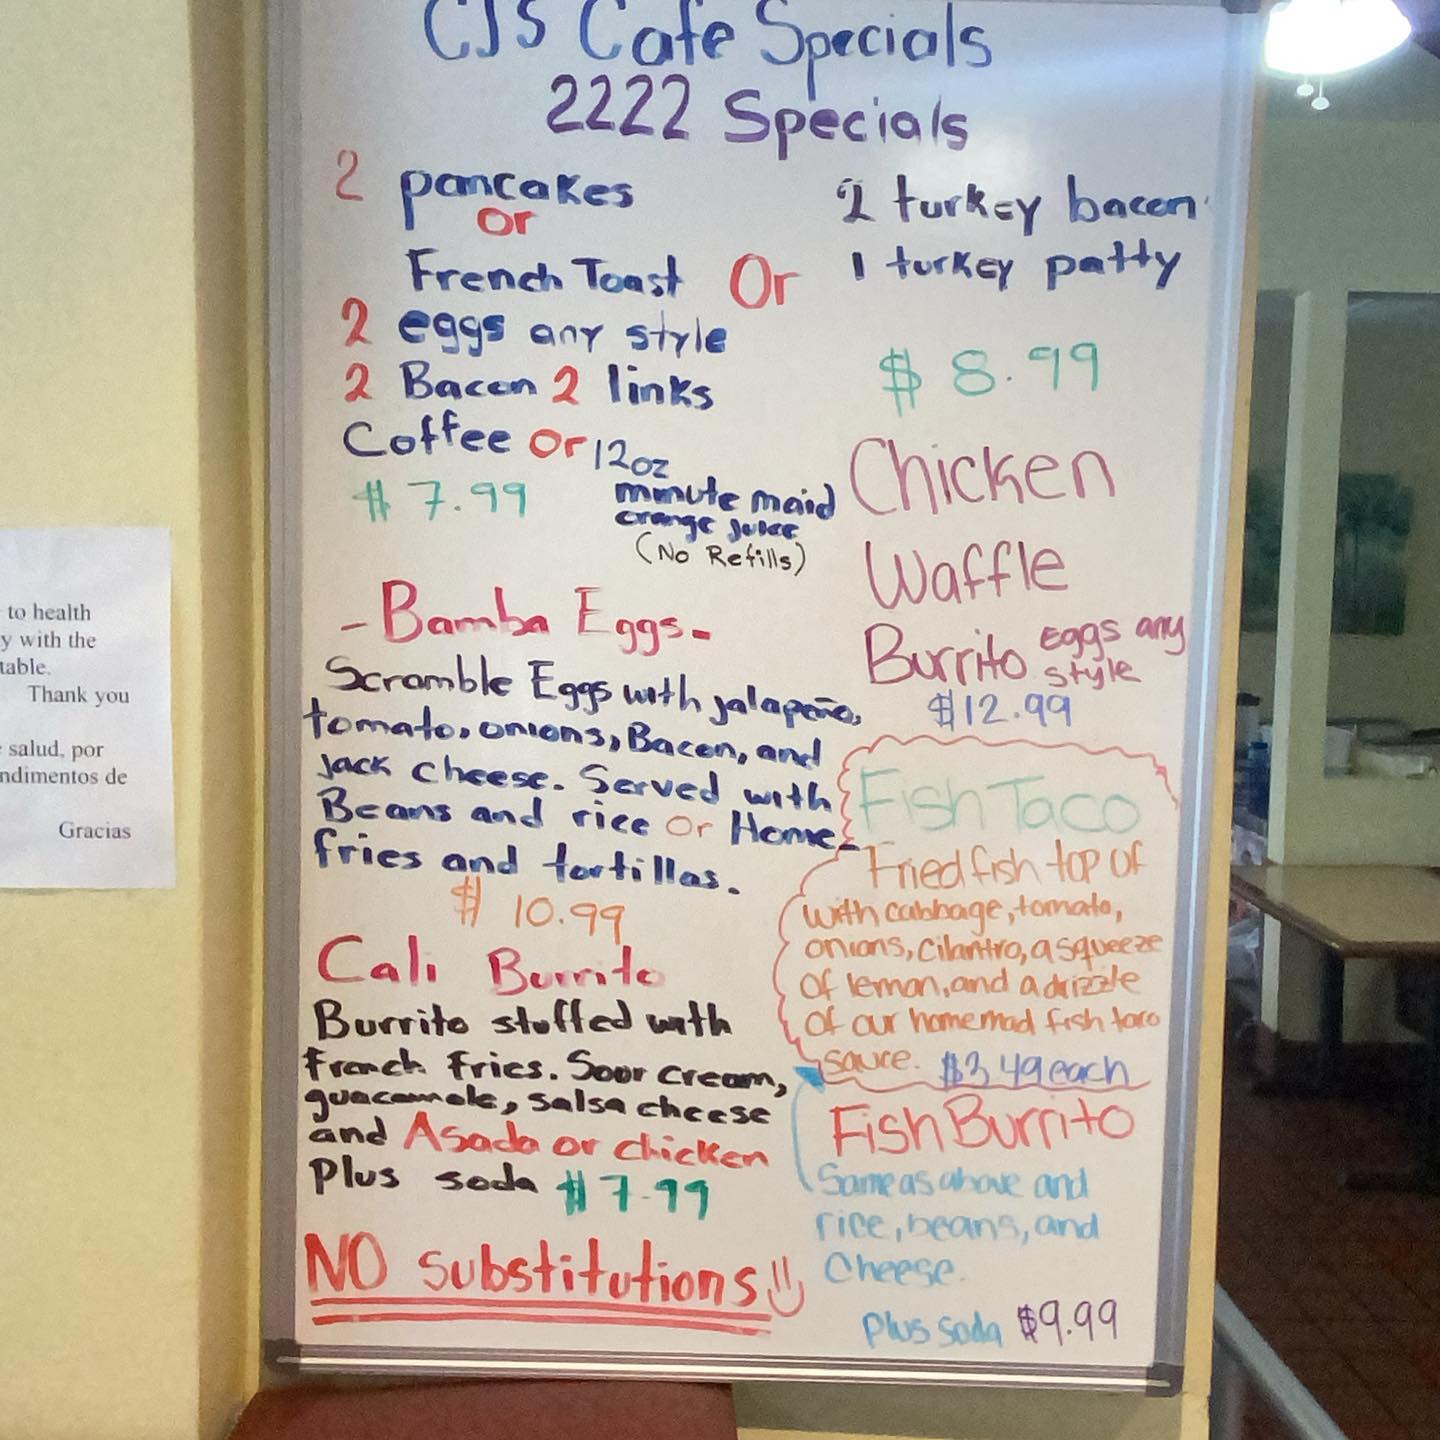 CJS Cafe Specials
2222 Specials
2 pancakes
or
French Toast
2 eggs any style
2 Bacon 2 links
Coffee or 12oz
minute maid
orange juice
(No Refills)
$ 7.99
Or
2 turkey bacon
1 turkey patty
$ 8.99
Chicken
Waffle
Burrito eggs any
style
$12.99
- Bamba Eggs -
Scramble Eggs with jalapeño,
tomato, onions, Bacon, and
jack cheese. Served with
Beans and rice or Home
fries and tortillas.
$ 10.99
Cali Burrito
Burrito stuffed with
french fries. Sour cream,
guacamole, salsa cheese
and Asada or chicken
Plus soda $7.99
NO substitutions
Fish Taco
Fried fish top of
with cabbage, tomato,
onions, cilantro, a squeeze
of lemon, and a drizzle
of our homemad fish taco
sauce. $3.49 each
Fish Burrito
Same as above and
rice, beans, and
Cheese.
plus soda $9.99
to health
y with the
table.
Thank you
salud, por
ndimentos de
Gracias